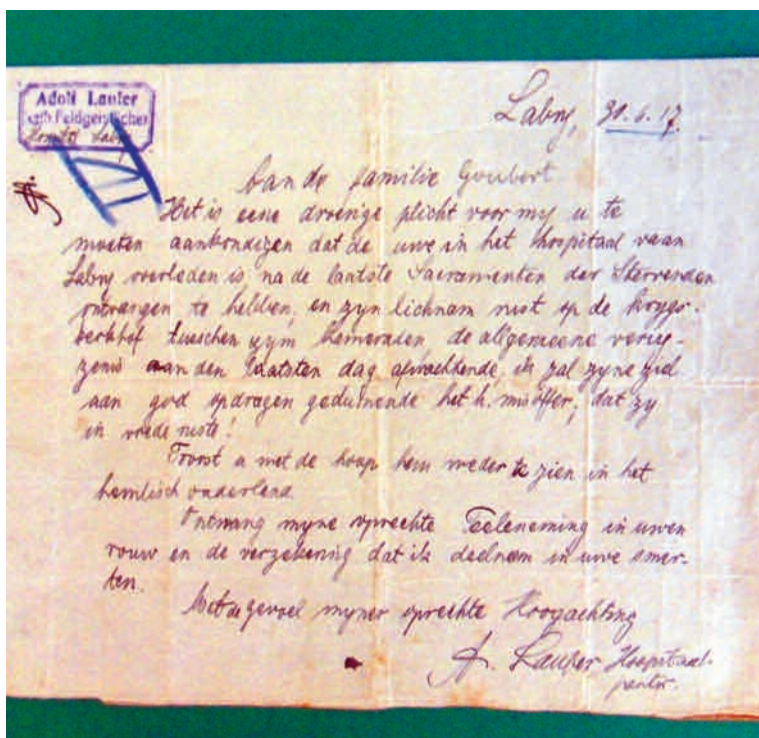 Adolf Laufer
kath Feldgeistlicher
Labry
Labry, 30.6.17.
Aan de familie Goubert
Het is eene droevige plicht voor my u te
moeten aankondigen dat de uwe in het Hospitaal vaan
Labry overleden is na de laatste Sacramenten der Stervenden
ontvangen te hebben, en zyn lichnam rust op de krygs-
kerkhof tusschen zym kameraden, de allgemeene verry-
zenis aan den laatsten dag afwachtende, ik zal zyne ziel
aan god opdragen gedurnende het h. misoffer, dat zy
in vrede ruste!
Troost u met de hoop hem weder te zien in het
hemlisch vaderland
Ontwang myne oprechte Teeleneming in uwen
rouw en de verzekering dat ik deelnem in uwe smer-
ten.
Met de gevoel myner oprechte Hoogachting
A. Laufer, Hospitaal-